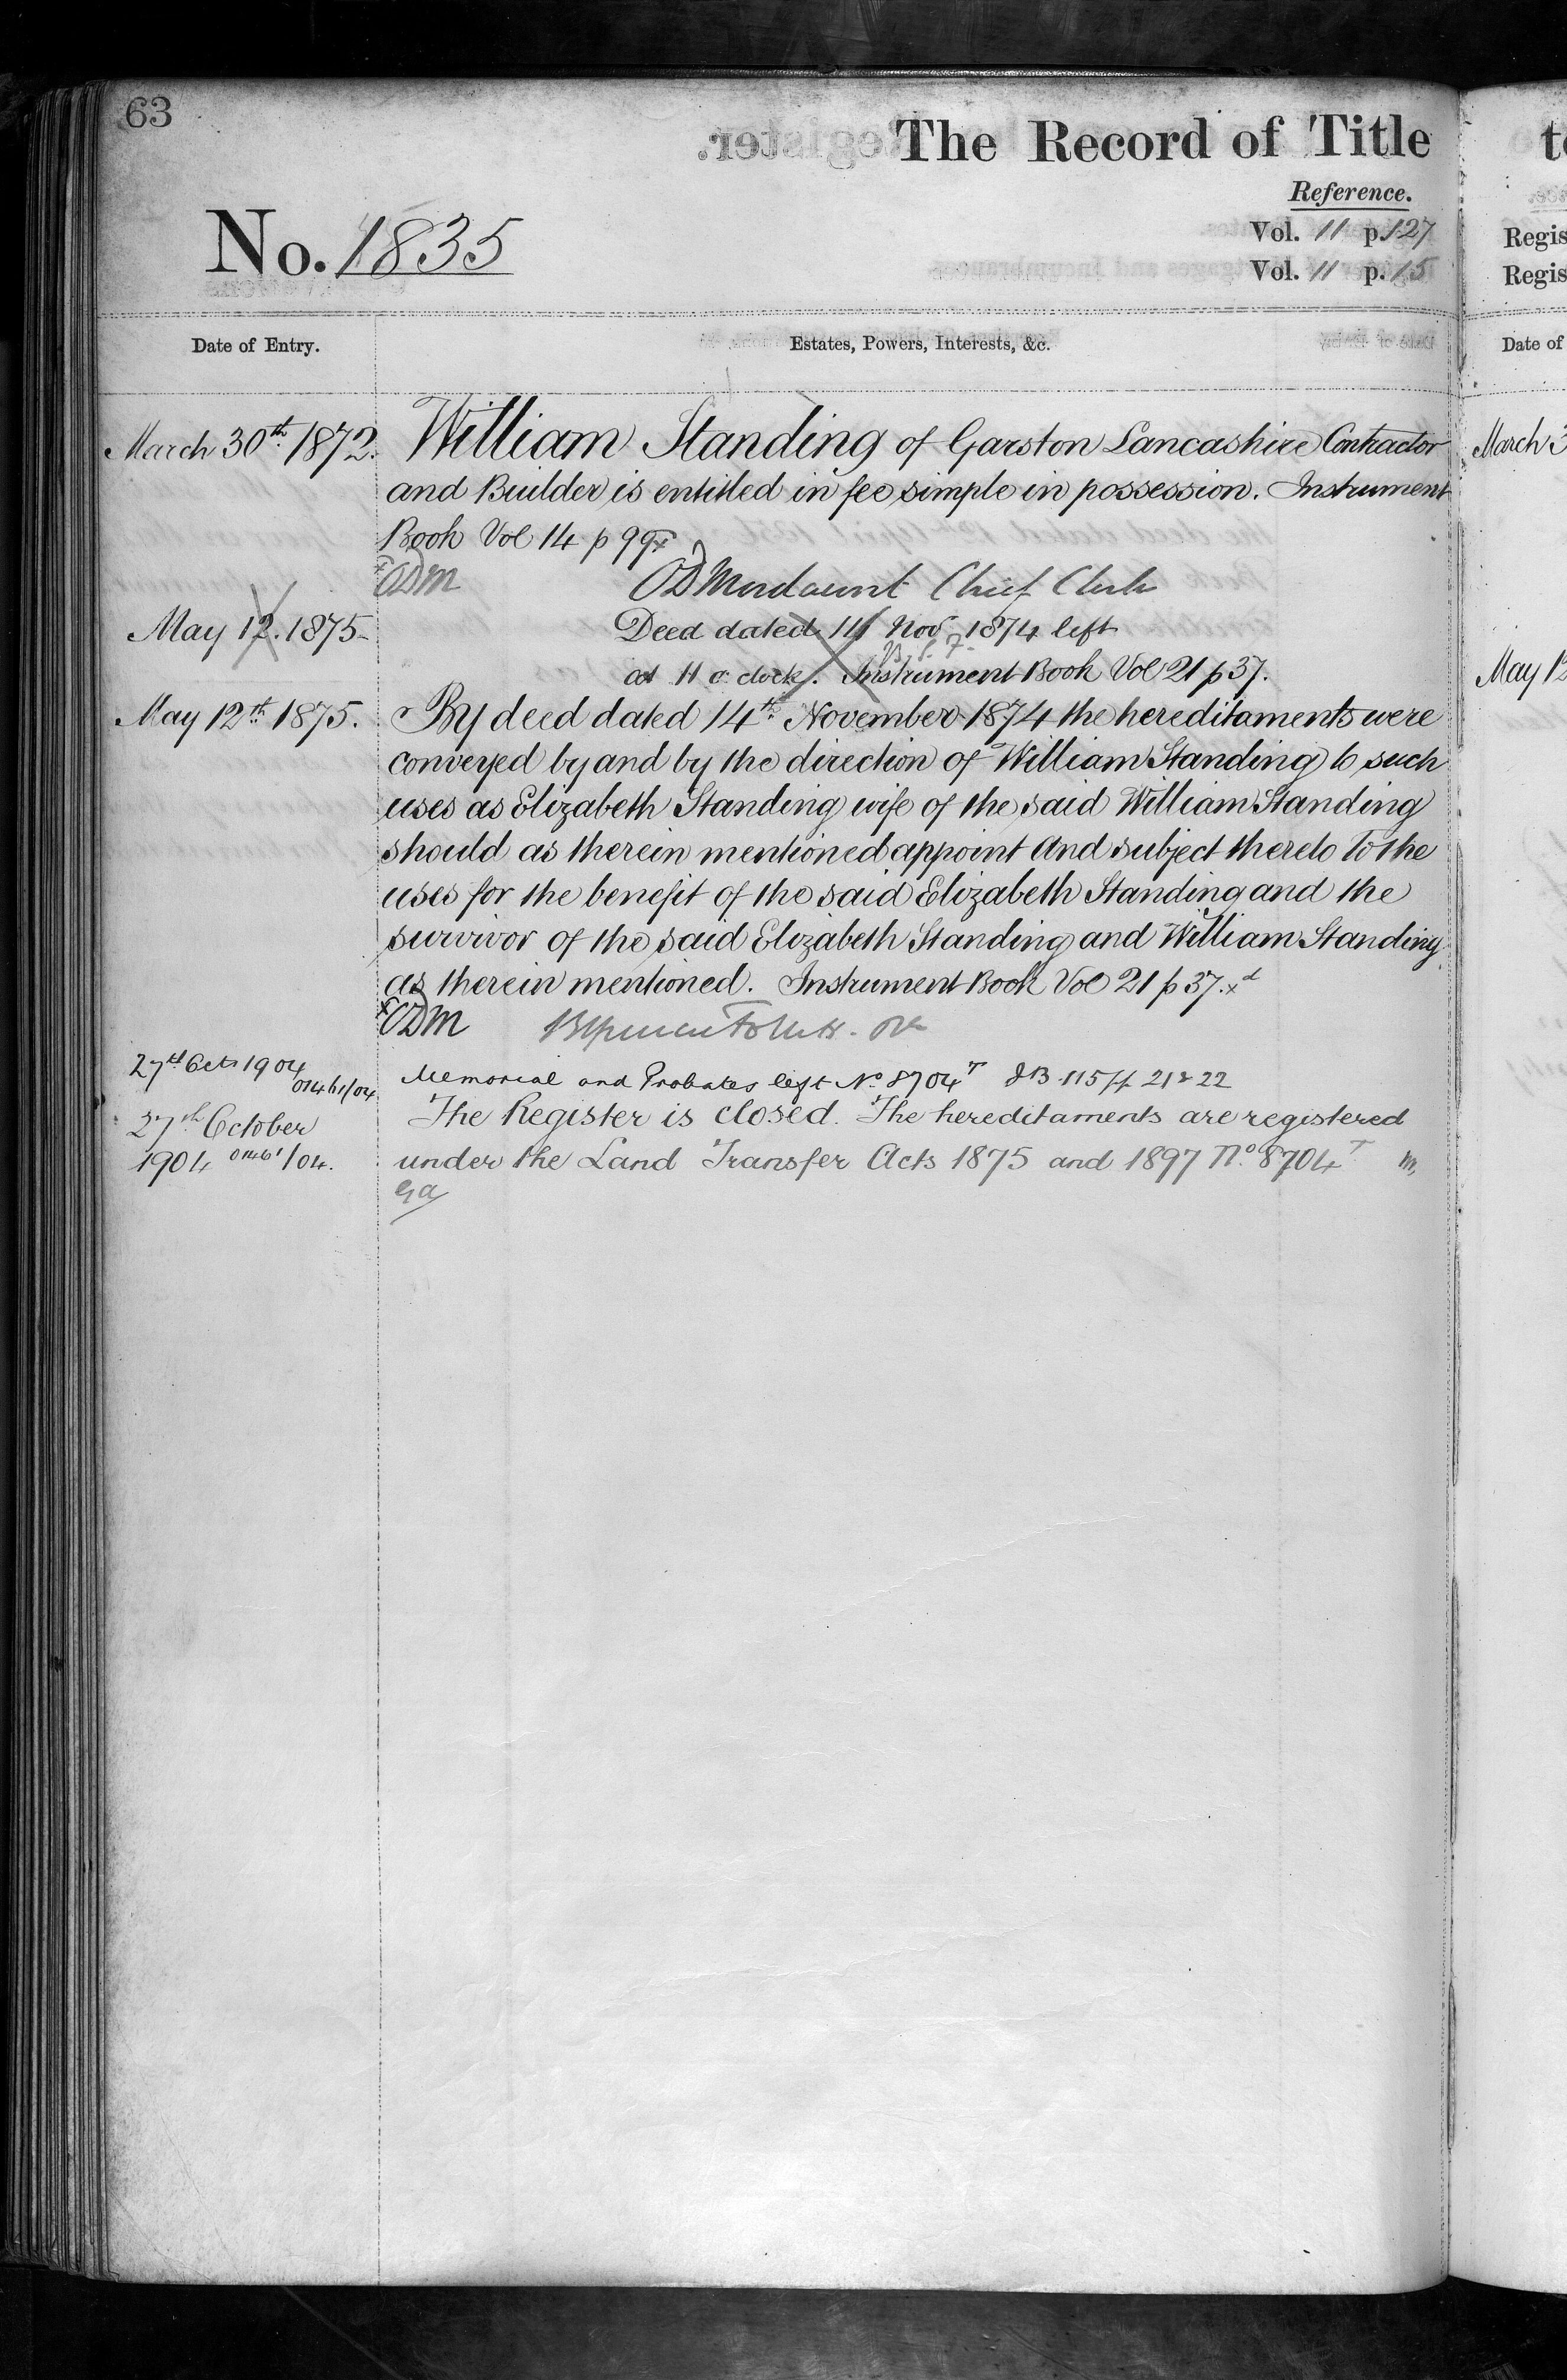 63
The Record of Title
Reference.
No. 1835
Vol. 11 p. 127
Vol. 11 p. 15
Date of Entry.
Estates, Powers, Interests, &c.
March 30th 1872. William Standing of Garston Lancashire Contractor
and Builder is entitled in fee simple in possession. Instrument
Book Vol 14 p 99x
xODM ODMordaunt Chief Clerk
May 12. 1875 Deed dated 14 Nov. 1874 left
at 11 o'clock. Instrument Book Vol 21 p 37.
May 12th 1875. By deed dated 14th November 1874 the hereditaments were
conveyed by and by the direction of William Standing to such
uses as Elizabeth Standing wife of the said William Standing
should as therein mentioned appoint And subject thereto To the
uses for the benefit of the said Elizabeth Standing and the
survivor of the said Elizabeth Standing and William Standing
as therein mentioned. Instrument Book Vol 21 p 37.x
xODM
27th Oct 1904 Memorial and Probates left No 8704T IB 115 ff 21 & 22
01461/04
27th October The Register is closed. The hereditaments are registered
1904 01461/04. under the Land Transfer Acts 1875 and 1897 No. 8704T
Ga
to
Regis
Regis
Date of
March 3
May 12